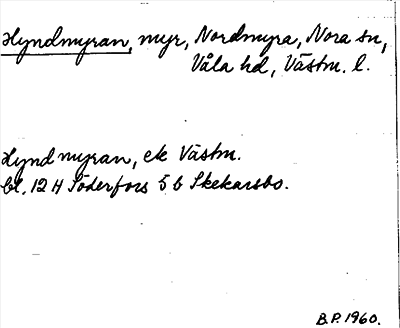 Hyndmyran, myr, Nordmyra, Nora sn,
Våla hd, Västm. l.
Hyndmyran, ek Västm.
bl. 12 H Söderfors 5 b Skekarsbo.
B.P. 1960.